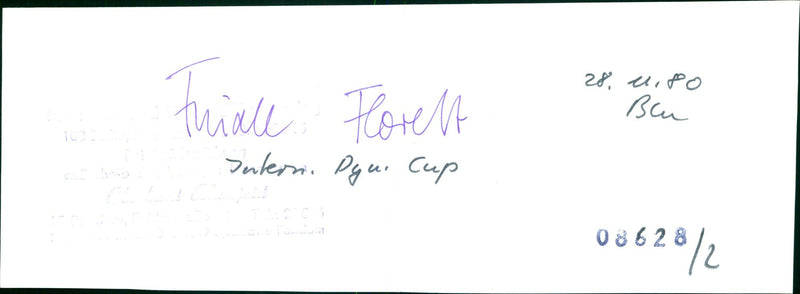 Finale Florett
Intern. Dyn. Cup
28. 11. 80
Bln
08628/2